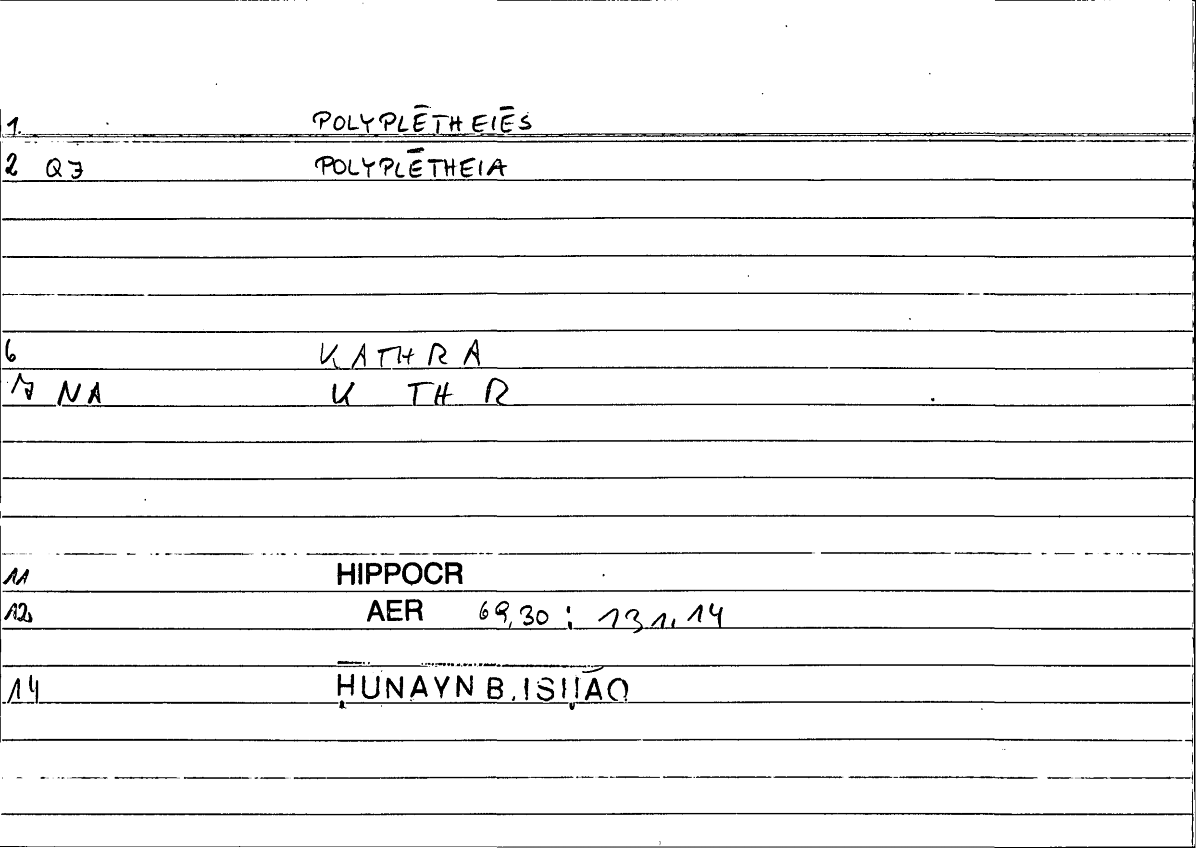 1. POLYPLĒTHEIĒS
2 Q7 POLYPLĒTHEIA
6 KATHRA
17 NA K TH R
11 HIPPOCR
12 AER 69,30 : 131,14
14 ḤUNAYN B. ISḤĀQ